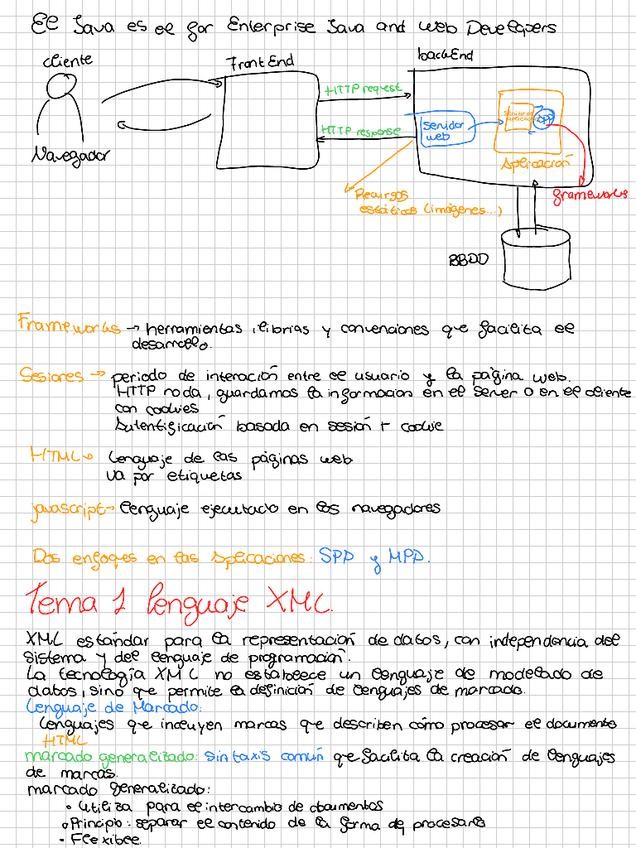 EE Java es el for Enterprise Java and Web Developers
cliente
Front End
backEnd
HTTP request
HTTP response
servidor
web
Aplicación
APP
Navegador
Recursos
estáticos (imágenes...)
frameworks
BBDD
Frameworks → herramientas, librias y convenciones que facilita el
desarrollo.
Sesiones → periodo de interacción entre el usuario y la página web.
HTTP nada, guardamos la informacion en el server o en el cliente
con cookies
Autentificación basada en sesión + cookie
HTML → Lenguaje de las páginas web
va por etiquetas
javascript → lenguaje ejecutado en los navegadores
Dos enfoques en las aplicaciones: SPA y MPA.
Tema 1 lenguaje XML.
XML estándar para la representación de datos, con independencia del
sistema y del lenguaje de programación.
La tecnología XML no establece un lenguaje de modelado de
datos, sino que permite la definición de lenguajes de marcado.
Lenguaje de Marcado:
Lenguajes que incluyen marcas que describen cómo procesar el documento
HTML
marcado generalitado: sintaxis común que facilita la creación de lenguajes
de marcas.
marcado generalitado:
• Utiliza para el intercambio de documentos
• Principio: separar el contenido de la forma de procesarlo
• Flexible.